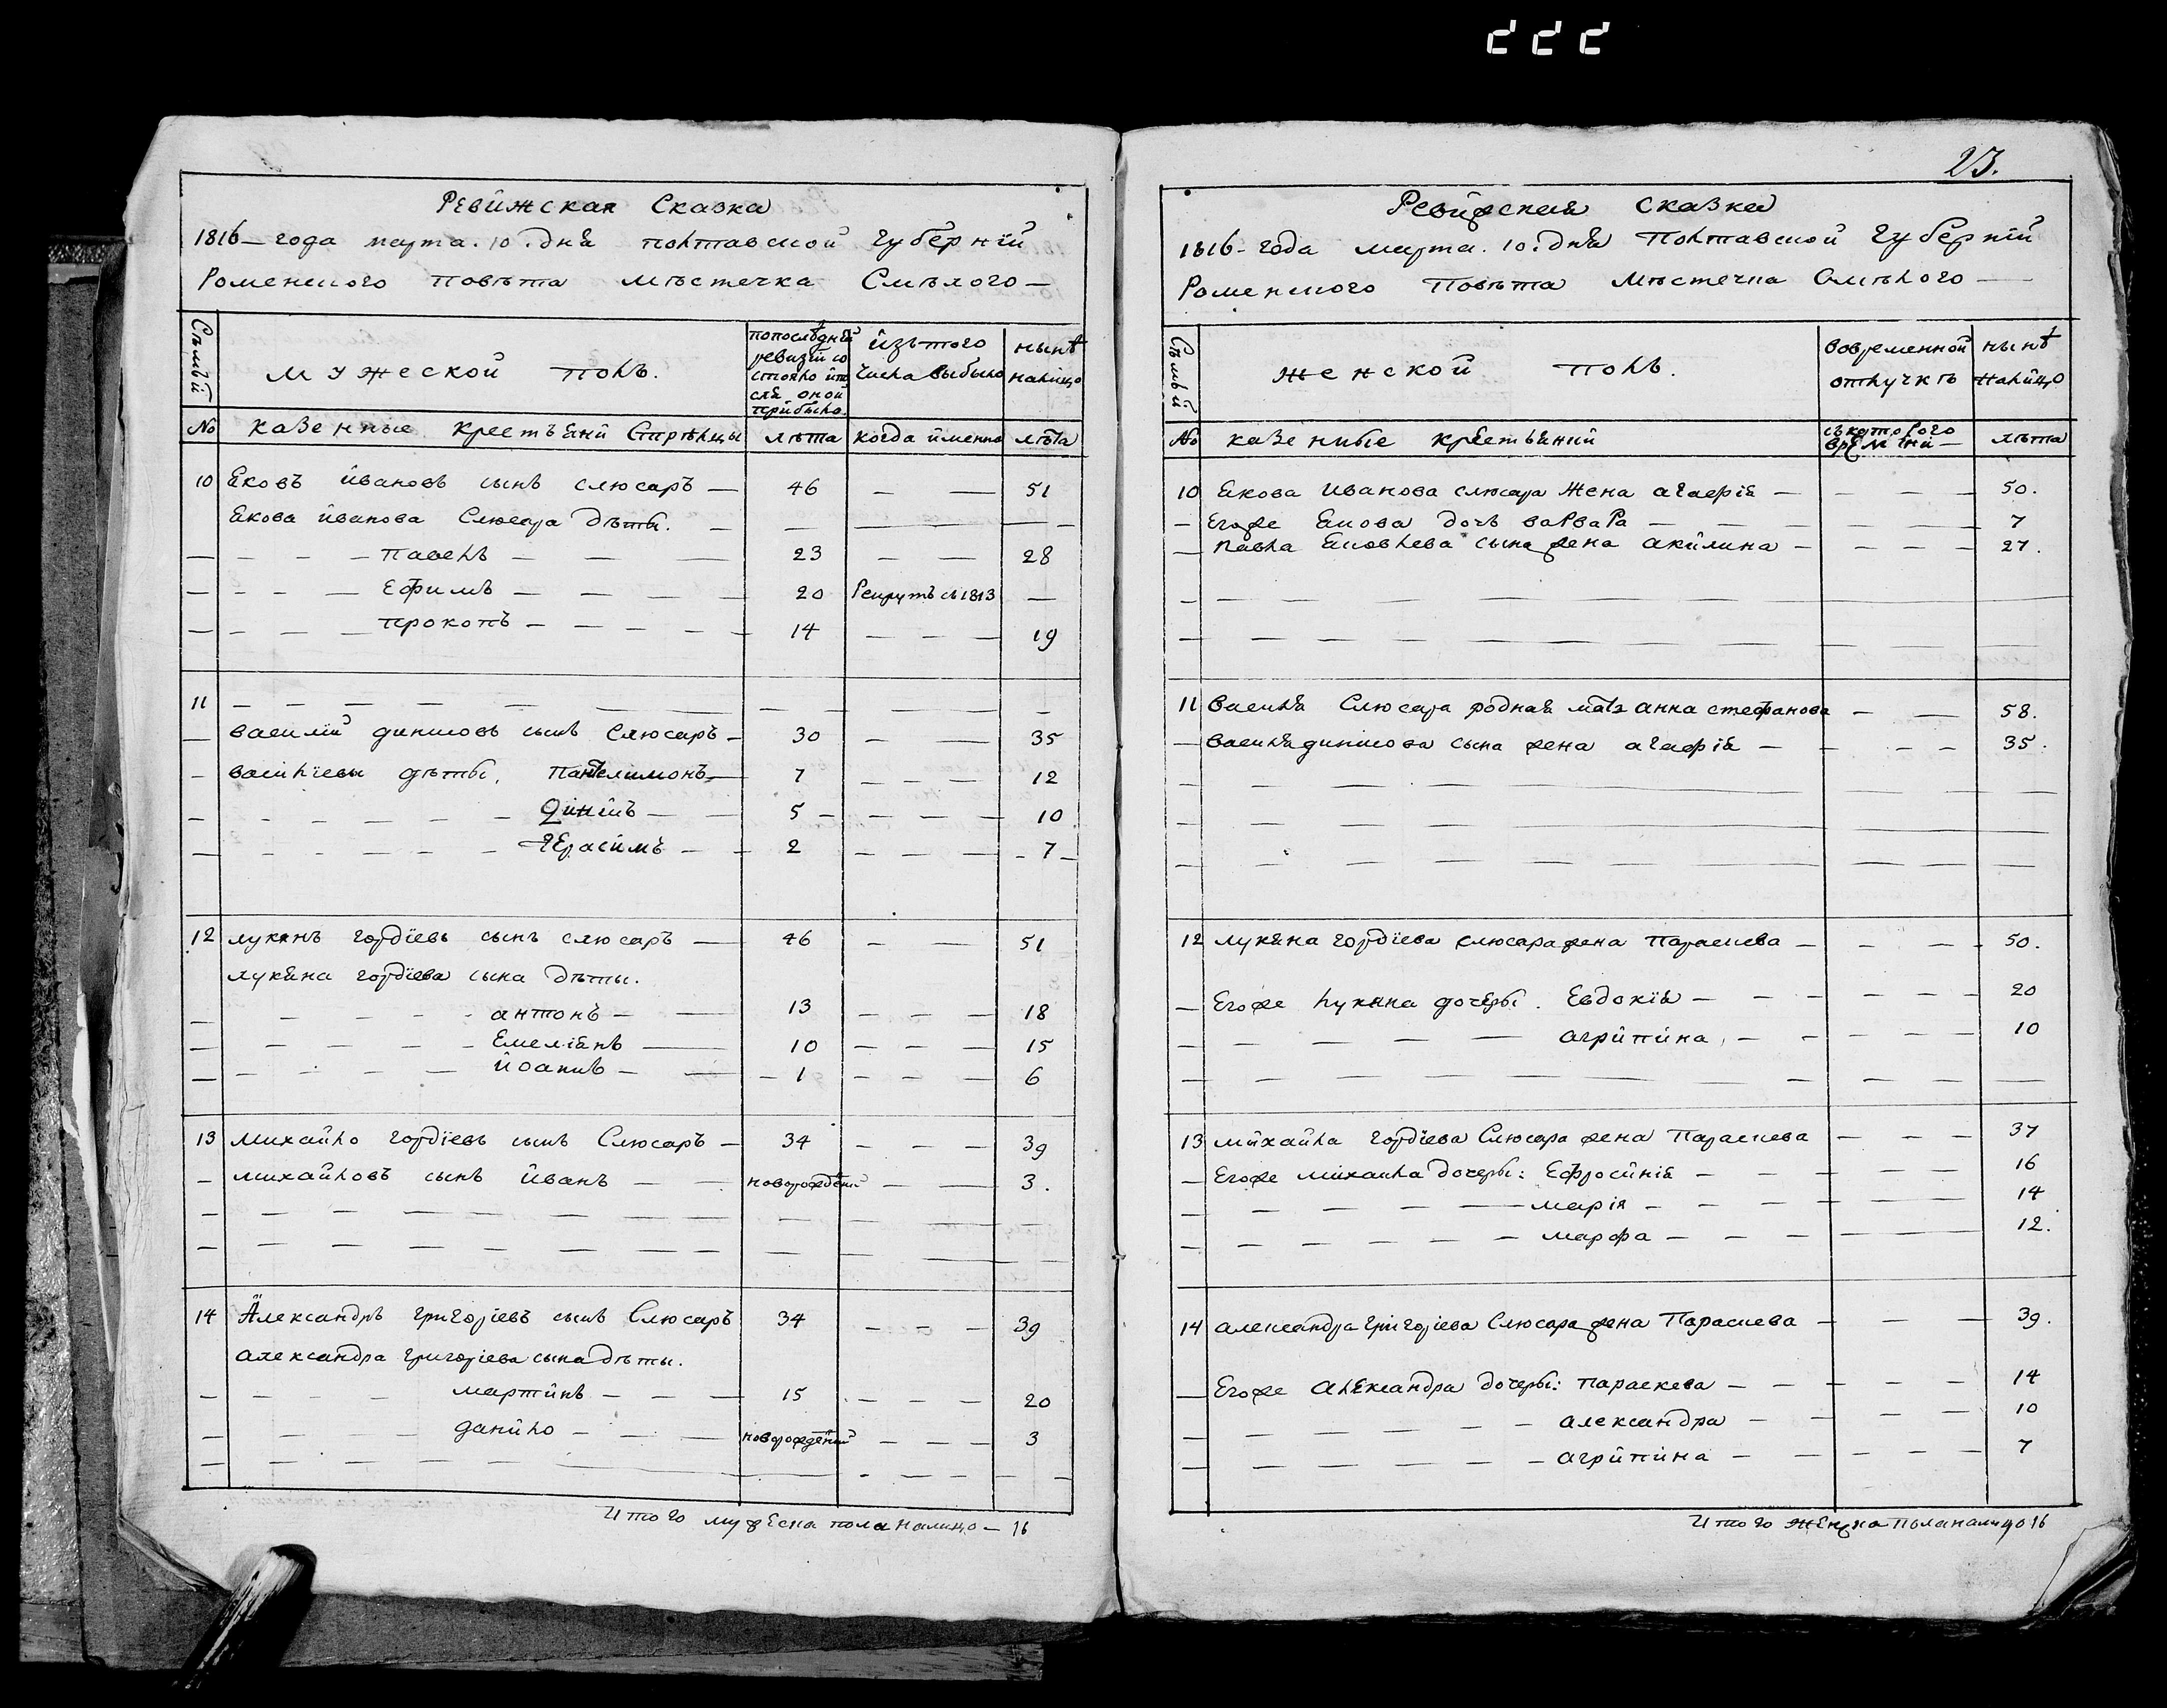 Ревижская Сказка
1816 – года марта. 10. дня полтавской губерній
Роменского Повѣта мѣстечка Смѣлого –
Сѣмьй
мужеской полъ.
попослѣдней ревизій состояло ипосля оной прибыло.
изъ того числа выбыло
нынѣ налицо
№ казенные крестьяни Стрѣлцы лѣта когда именно лѣта
10 Яковъ йвановъ сынъ слюсаръ — 46 — — 51
Якова йванова Слюсара дѣти. —
— Павелъ — 23 — — 28
— Ефимъ — 20 Рекрутъ съ 1813 —
— прокопъ — 14 — — 19
11 — — —
— василій сынъ Слюсаръ — 30 — — 35
— василіевы дѣты. Пантелимонъ — 7 — — 12
— — 5 — — 10
— Герасимъ — 2 — — 7 —
12 лукянъ гордіевъ сынъ слюсаръ — 46 — — 51
лукяна гордіева сына дѣты.
— антонъ — 13 — — 18
— Емеліянъ — 10 — — 15
— йоанъ — 1 — — 6
13 Михайло гордіевъ сынъ Слюсаръ — 34 — — 39
— михайловъ сынъ йванъ — новорожденій — — 3.
14 Александръ григоріевъ сынъ Слюсаръ 34 — — 39
александра григоріева сына дѣты.
— мартинъ — 15 — — 20
— данило — новорожденій — — 3
Итого мужеска пола налицо — 16
23.
Ревижская сказка
1816 – года марта. 10. дня Полтавской губерній
Роменского Повѣта Мѣстечка Смѣлого —
Сѣмьй
женской полъ.
вовременной отлучкѣ
нынѣ налицо
№ казенные крестьяний съ которого времѣни — лѣта
10 Якова Иванова слюсара жена агафія — — 50.
— Егоже Якова дочь варвара — — 7
— Павла Яковлева сына жена акилина — — 27.
11 Василя Слюсара родная мать анна стефанова — — 58.
— Василя сына жена агафія — — 35.
12 лукяна гордіева слюсара жена Параскева — — 50.
— Егоже лукяна дочеры. Евдокія — — 20
— агрипина, — — 10
13 михайла гордіева Слюсара жена Параскева — — 37
— Егоже михайла дочеры: Ефросинія — — 16
— марія — — 14
— марфа — — 12.
14 александра григоріева Слюсара жена Параскева — — 39.
— Егоже александра дочеры: параскева — — 14
— александра — — 10
— агрипина — — 7
Итого женска пола налицо 16